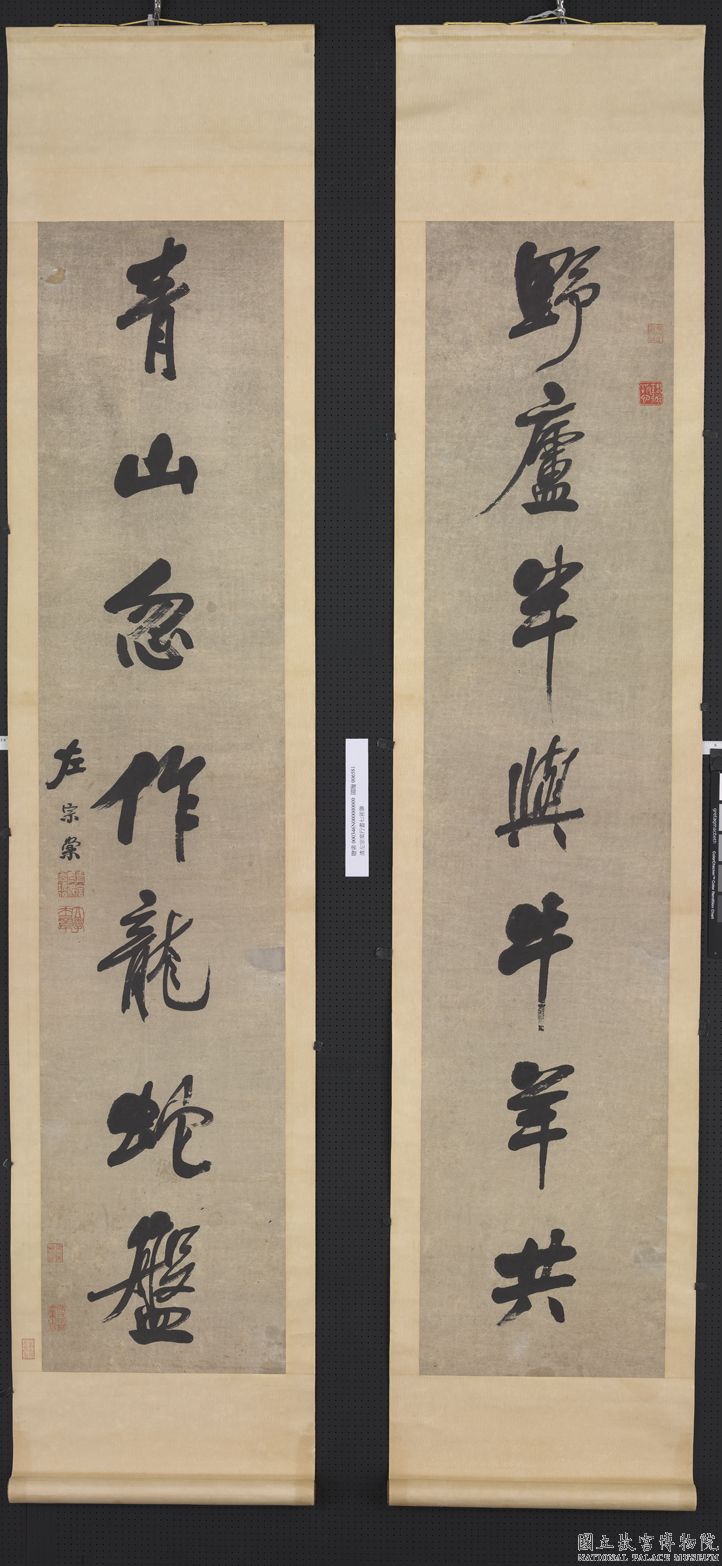 野廬半與牛羊共
青山忽作龍蛇盤
左宗棠
國立故宮博物院
NATIONAL PALACE MUSEUM